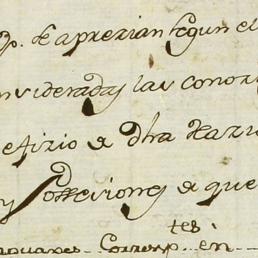 p. de aprezian segun el
nsideradas las conoz
efizio de dha Hazi
y Possesiones de que
tes
Corresp. en